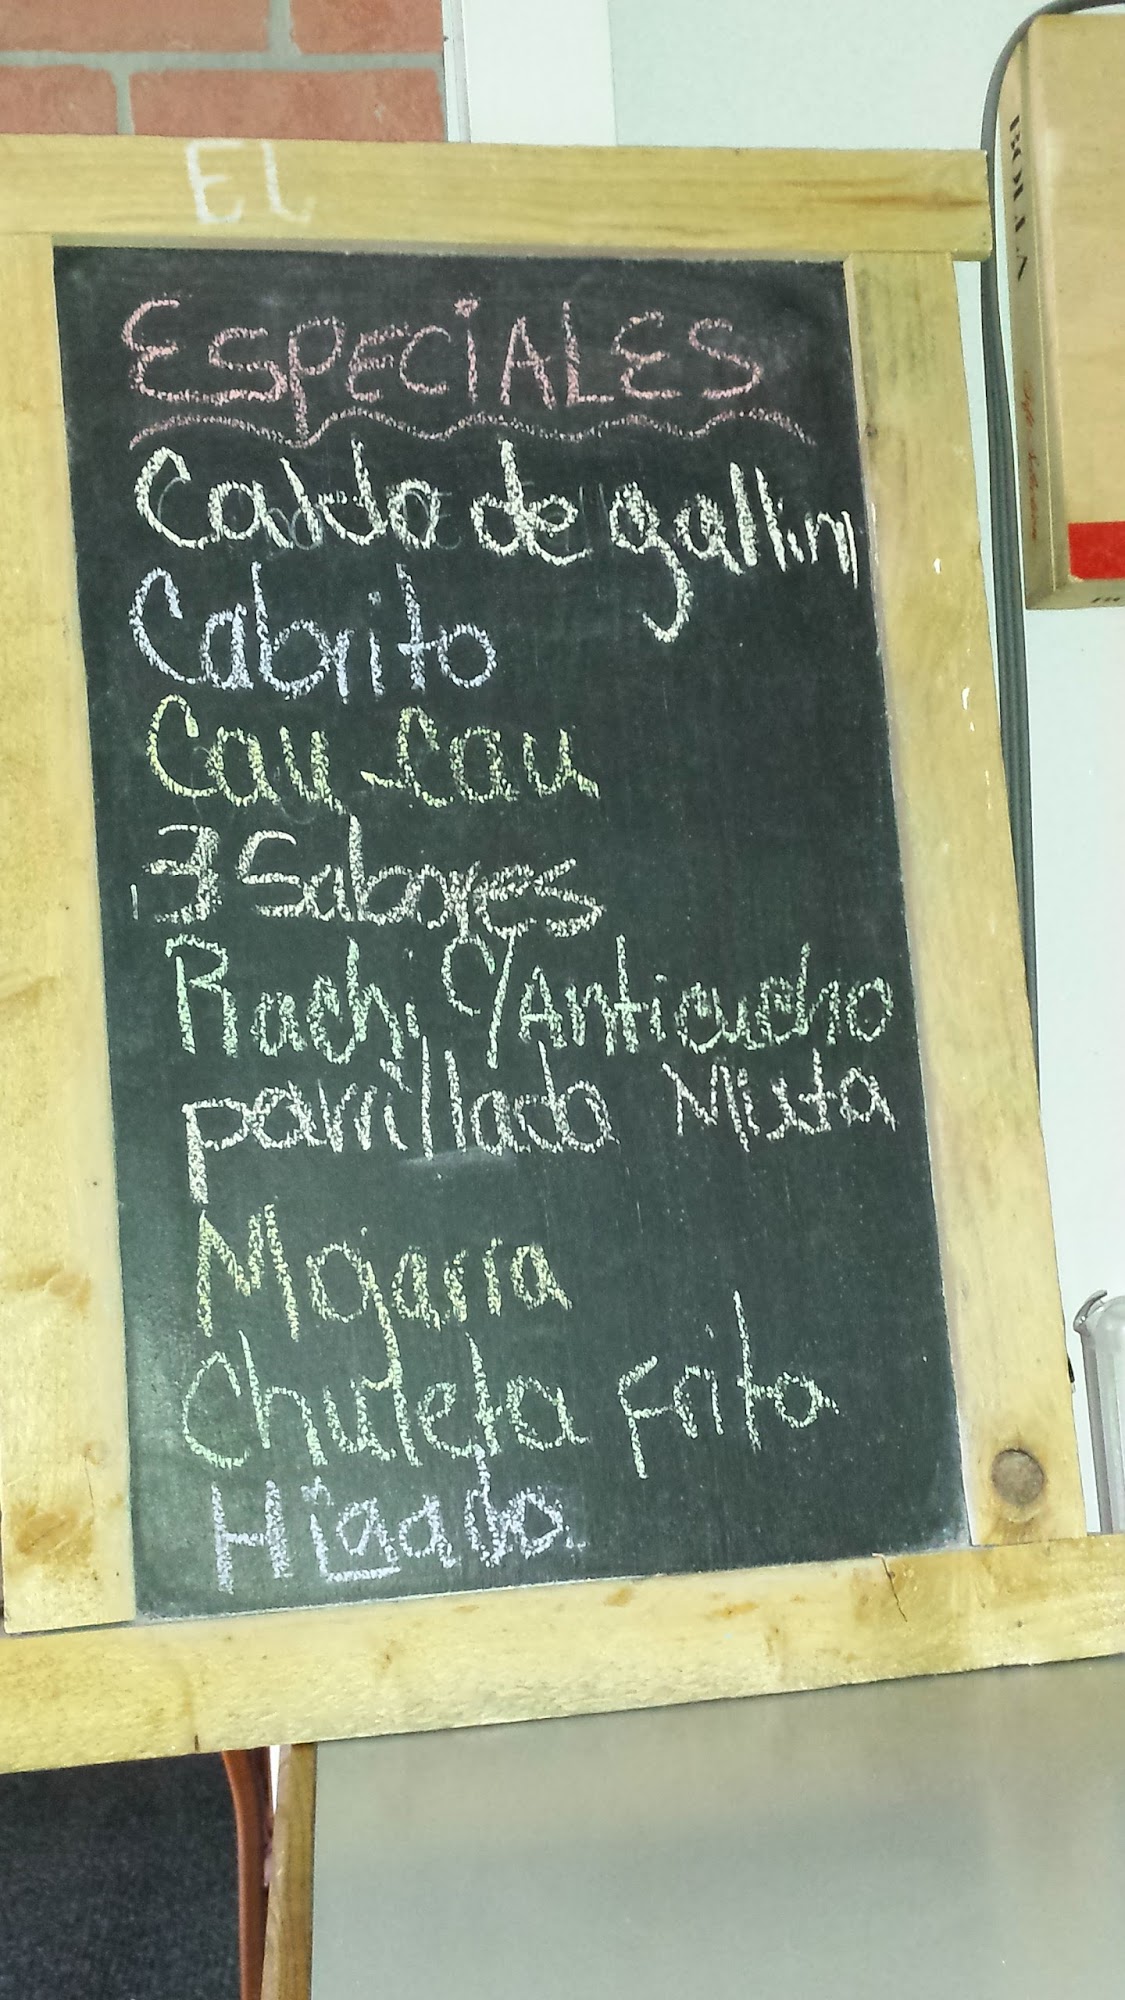 EL
ESPECIALES
Caldo de gallin
Cabrito
Cau cau
3 Sabores
Rachi C/Anticucho
parrillada Mixta
Mojarra
Chuleta Frita
Higado
BOLLA